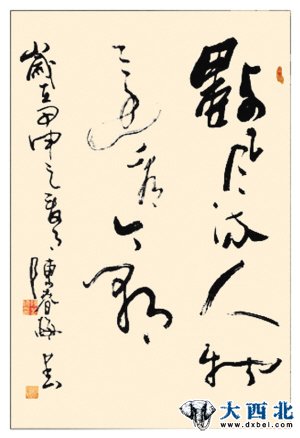 數风流人物
還看今朝
歲在甲申之陳春梅书
大西北
www.dxbei.com